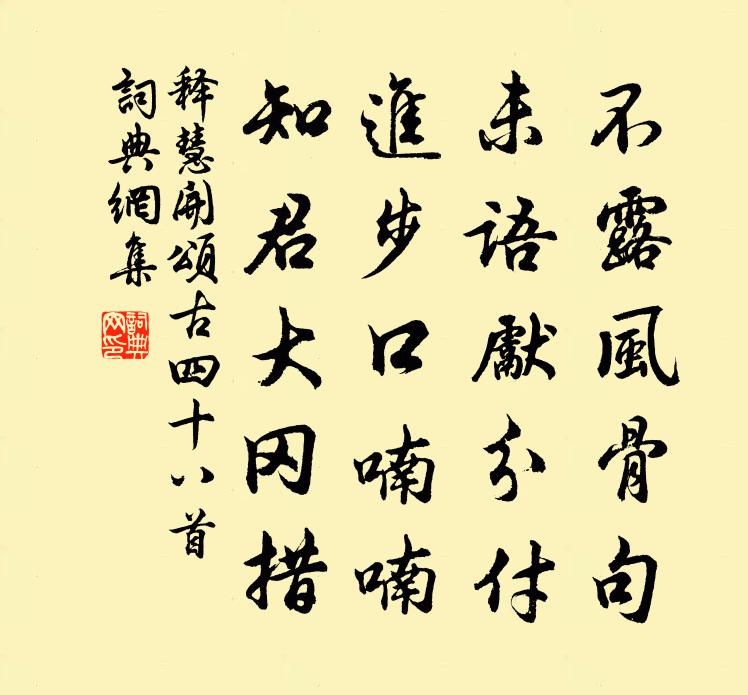 不露風骨句
未語獻分付
進步口喃喃
知君大冈措
释慧開頌古四十八首
詞典網集
詞典网印